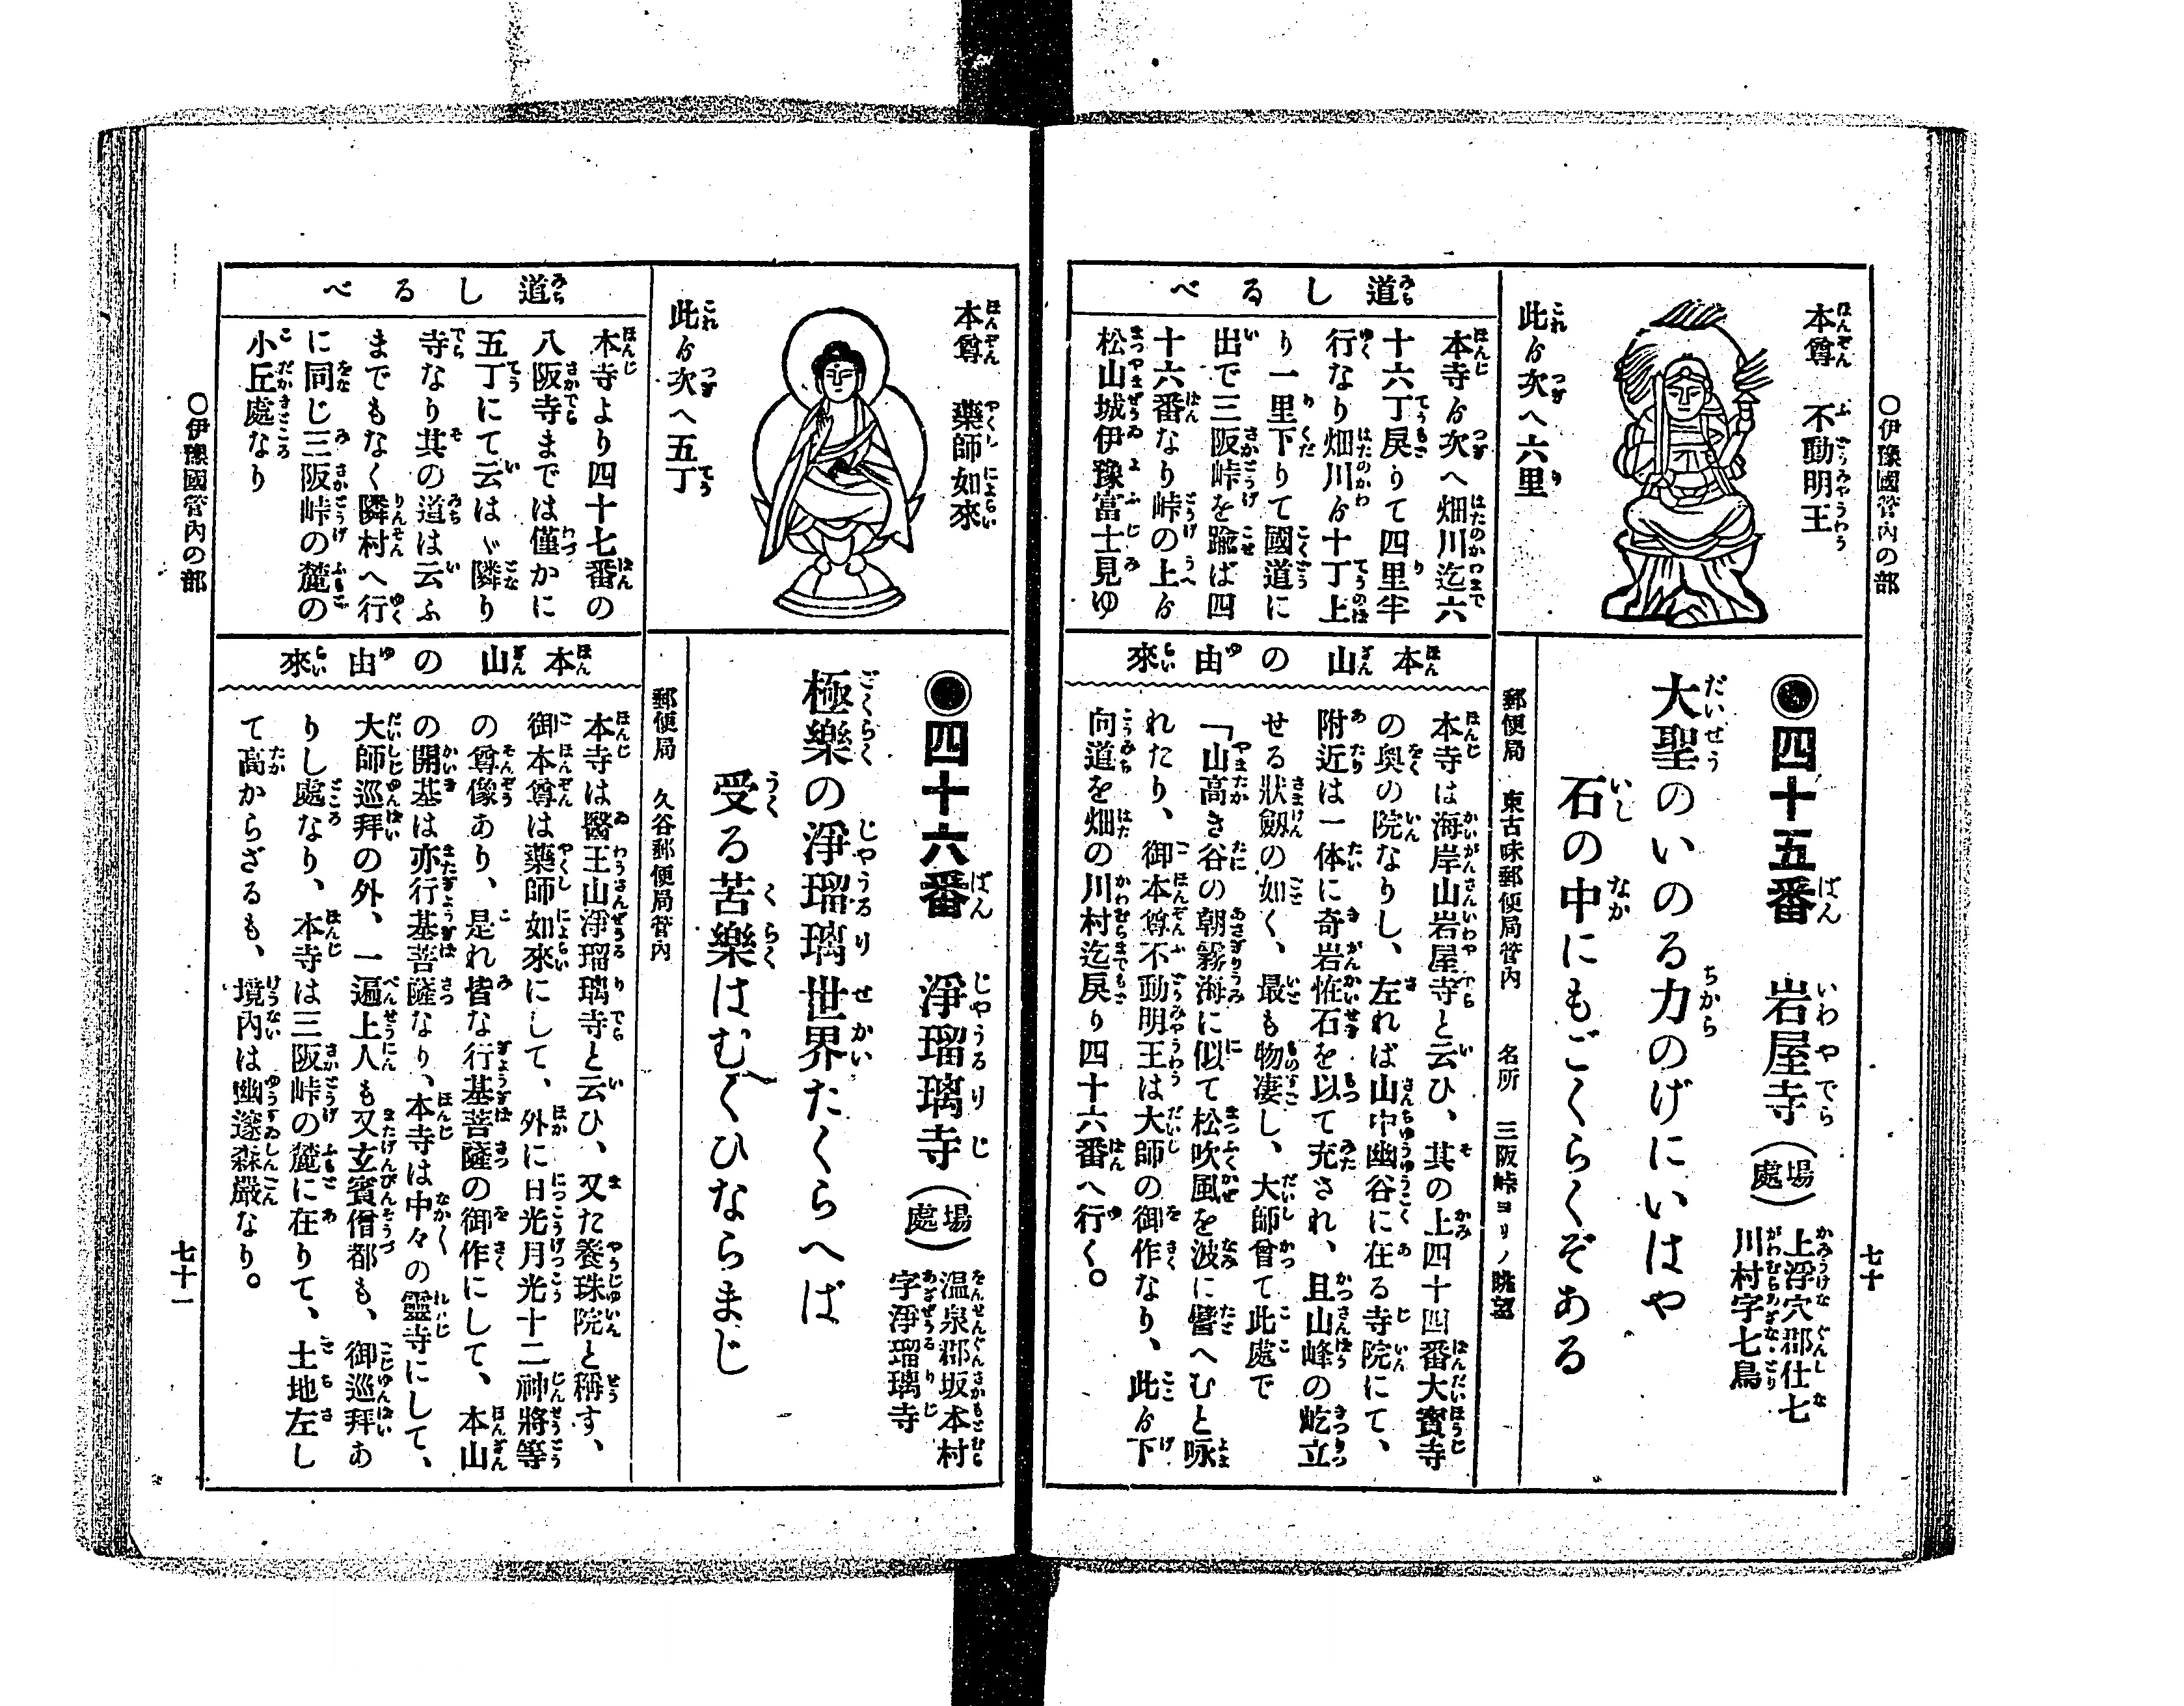 〇伊豫國管內の部
七十
本尊 不動明王
此ゟ次へ六里
◉四十五番 岩屋寺（場處）上浮穴郡仕七
川村字七鳥
大聖のいのる力のげにいはや
石の中にもごくらくぞある
郵便局 東古味郵便局管內 名所 三阪峠ヨリノ眺望
道しるべ
本寺ゟ次へ畑川迄六
十六丁戻りて四里半
行なり畑川ゟ十丁上
り一里下りて國道に
出で三阪峠を踰ば四
十六番なり峠の上ゟ
松山城伊豫富士見ゆ
本山の由來
本寺は海岸山岩屋寺と云ひ、其の上四十四番大寶寺
の奧の院なりし、左れば山中幽谷に在る寺院にて、
附近は一体に奇岩恠石を以て充され、且山峰の屹立
せる狀劔の如く、最も物凄し、大師曾て此處で
「山高き谷の朝霧海に似て松吹風を波に譬へむと咏
れたり、御本尊不動明王は大師の御作なり、此ゟ下
向道を畑の川村迄戻り四十六番へ行く。
本尊 藥師如來
此ゟ次へ五丁
◉四十六番 淨瑠璃寺（場處）温泉郡坂本村
字淨瑠璃寺
極樂の淨瑠璃世界たくらへば
受る苦樂はむくひならまじ
郵便局 久谷郵便局管內
道しるべ
本寺より四十七番の
八阪寺までは僅かに
五丁にて云はゞ隣り
寺なり其の道は云ふ
までもなく隣村へ行
に同じ三阪峠の麓の
小丘處なり
本山の由來
本寺は醫王山淨瑠璃寺と云ひ、又た養珠院と稱す、
御本尊は藥師如來にして、外に日光月光十二神將等
の尊像あり、是れ皆な行基菩薩の御作にして、本山
の開基は亦行基菩薩なり、本寺は中々の靈寺にして、
大師巡拜の外、一遍上人も又玄賓僧都も、御巡拜あ
りし處なり、本寺は三阪峠の麓に在りて、土地左し
て高からざるも、境內は幽邃森嚴なり。
〇伊豫國管內の部
七十一